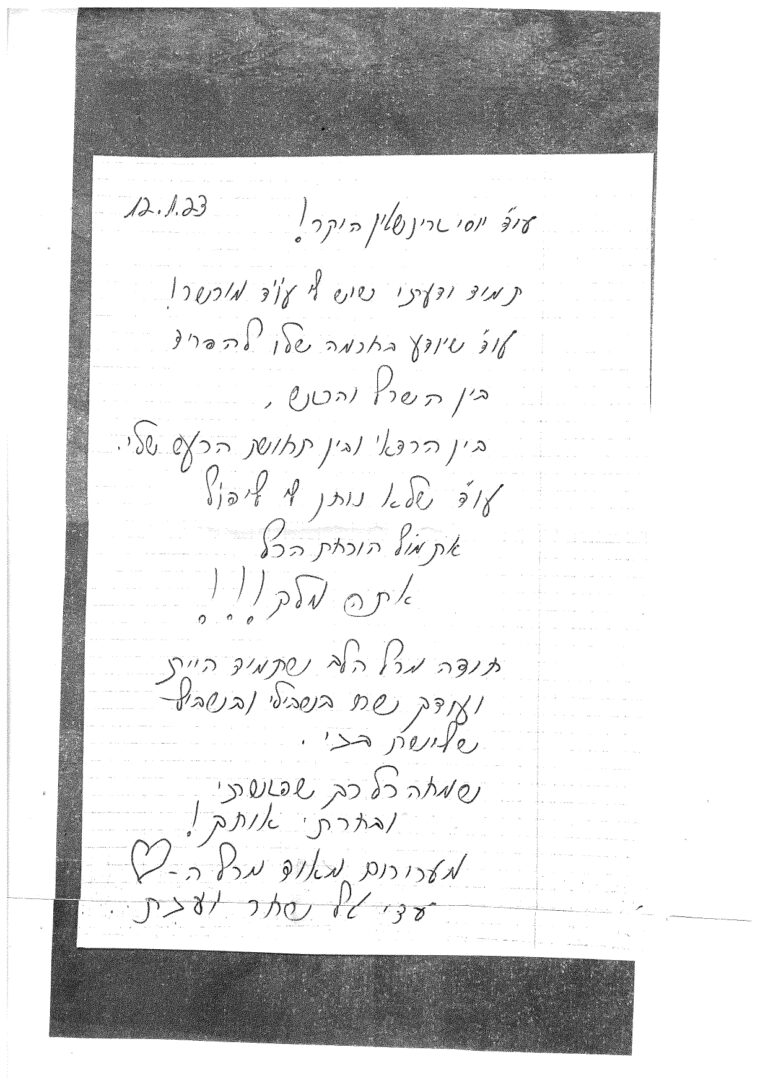 12.1.23
עו"ד יוסי ארינשטין היקר!
תמיד ידעתי שיש לי עו"ד מוכשר!
עו"ד שיודע בחכמה שלו להפריד
בין השכל והרגש,
בין הרציו ובין תחושת הרעש שלי.
עו"ד שלא נותן לי ליפול
אתמול הוכחת הכל
אתה מלך!!!
תודה מכל הלב שתמיד היית
ועודך שם בשבילי ובשביל
שלושת בניי.
שמחה כל כך שפגשתי
ובחרתי אותך!
מעריכים מאוד מכל ה-♡
עדי גל שחר ועברית.